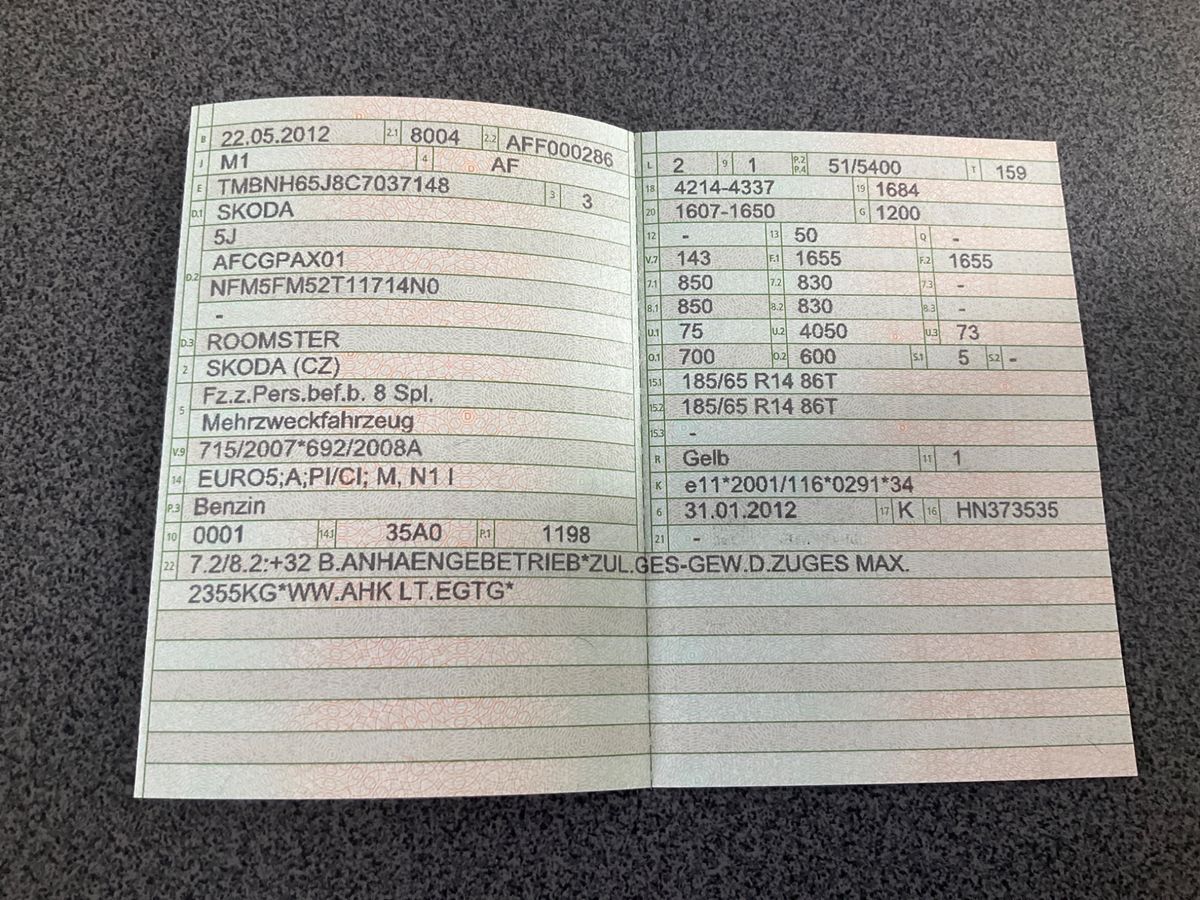 B 22.05.2012 2.1 8004 2.2 AFF000286
J M1 4 AF
E TMBNH65J8C7037148 3 3
D.1 SKODA
5J
D.2 AFCGPAX01
NFM5FM52T11714N0
-
D.3 ROOMSTER
2 SKODA (CZ)
5 Fz.z.Pers.bef.b. 8 Spl.
Mehrzweckfahrzeug
V.9 715/2007*692/2008A
14 EURO5;A;PI/CI; M, N1 I
P.3 Benzin
10 0001 14.1 35A0 P.1 1198
L 2 9 1 P.2 P.4 51/5400 T 159
18 4214-4337 19 1684
20 1607-1650 G 1200
12 - 13 50 Q -
V.7 143 F.1 1655 F.2 1655
7.1 850 7.2 830 7.3 -
8.1 850 8.2 830 8.3 -
U.1 75 U.2 4050 U.3 73
O.1 700 O.2 600 S.1 5 S.2 -
15.1 185/65 R14 86T
15.2 185/65 R14 86T
15.3 -
R Gelb 11 1
K e11*2001/116*0291*34
6 31.01.2012 17 K 16 HN373535
21 -
22 7.2/8.2:+32 B.ANHAENGEBETRIEB*ZUL.GES-GEW.D.ZUGES MAX.
2355KG*WW.AHK LT.EGTG*